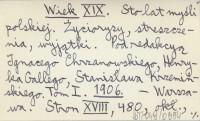 Wiek XIX. Sto lat myśli
polskiej. Życiorysy, streszcze-
nia, wyjątki. Pod redakcją
Ignacego Chrzanowskiego, Henry-
ka Gallego, Stanisława Krzemiń-
skiego. Tom I. 1906. — Warsza-
wa. Stron XVIII, 480,